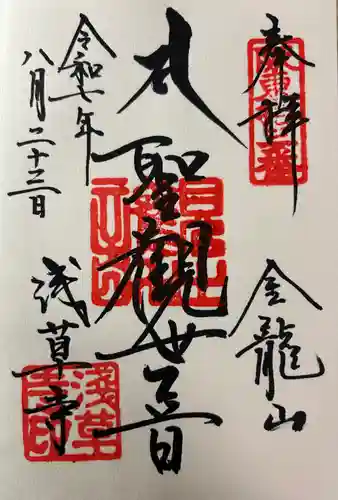 奉拝
金龍山
聖観世音
令和七年
八月二十三日
浅草寺